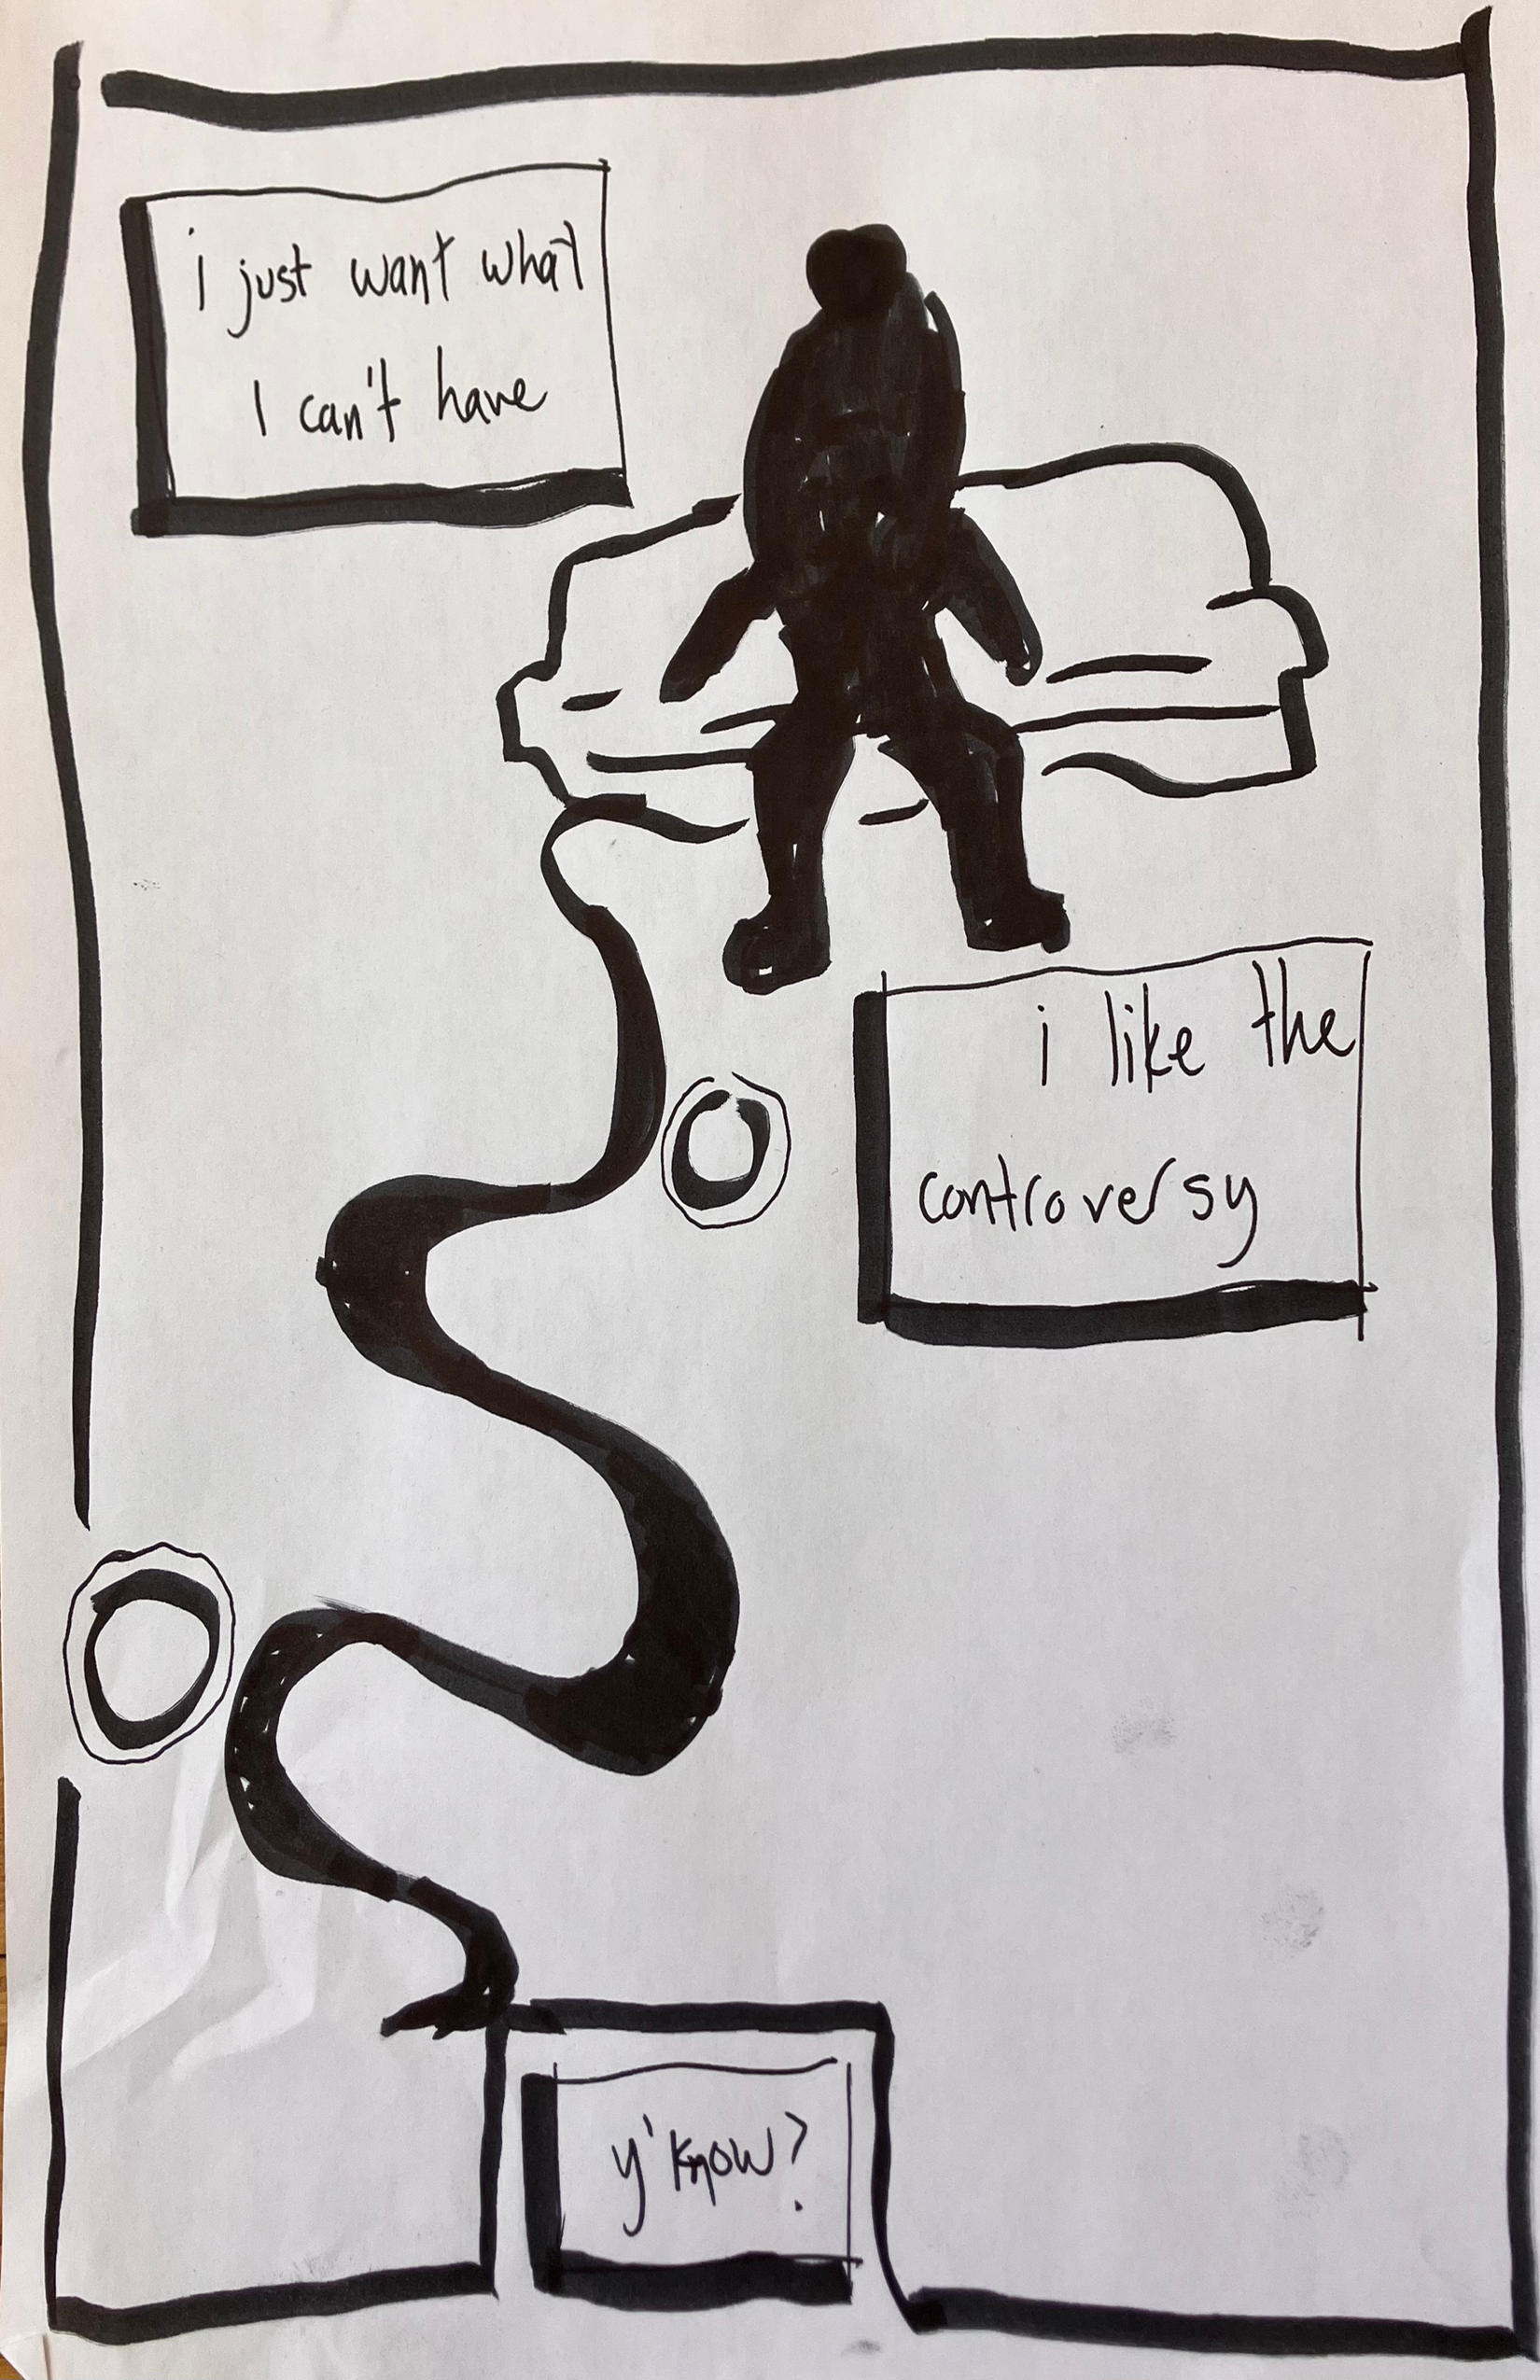 i just want what
I can't have
i like the
controversy
y'know?